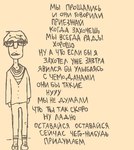 мы прощались
и они говорили
приезжай
когда захочешь
мы всегда рады
хорошо
ну а что если бы я
захотел уже завтра
явился бы улыбаясь
с чемоданами
они бы такие
нууу
мы не думали
что ты так скоро
ну ладно
оставайся оставайся
сейчас чего-нибудь
придумаем